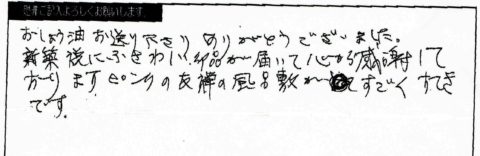 ご自由にご記入よろしくお願いします。
おしょう油お送り下さり ありがとうございました。
新築祝にふさわしい 品が届いて心から感謝して
おります ピンクの友禅の風呂敷が すごく すてき
です。